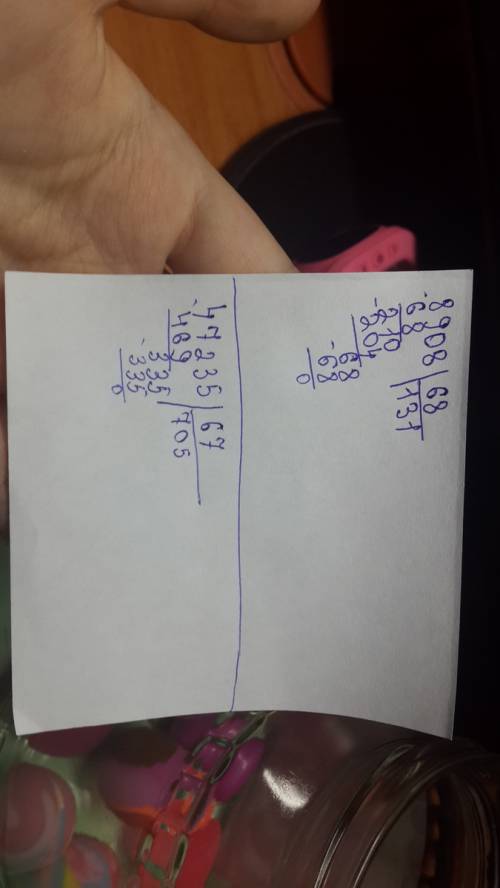 8908 | 68
-68 | 131
210
-204
68
-68
0
47235 | 67
-469 | 705
335
-335
0